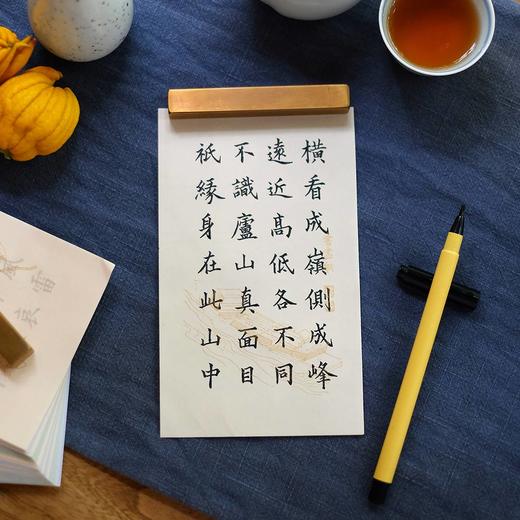 橫看成嶺側成峰
遠近高低各不同
不識廬山真面目
祇緣身在此山中
雷
哀